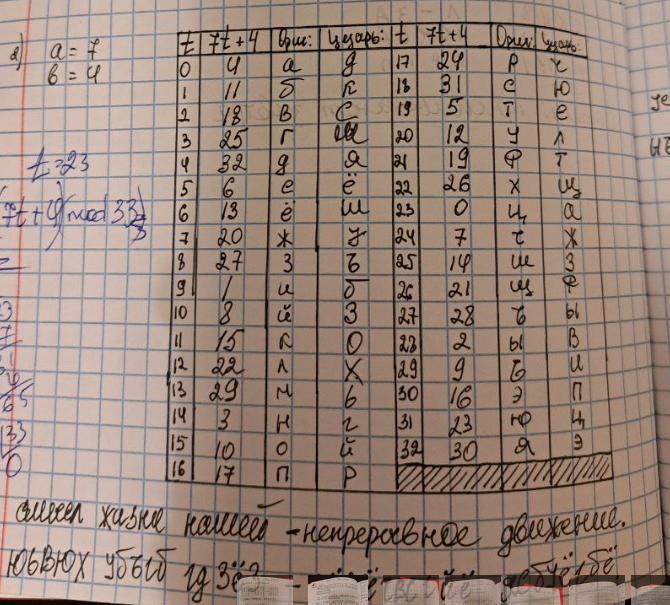 2) a = 7
b = 4
t = 23
7t + 4 (mod 33)
t 7t+4 Ориг: Цезарь: t 7t+4 Ориг: Цезарь:
0 4 а д 17 24 р ч
1 11 б к 18 31 с ю
2 18 в с 19 5 т е
3 25 г ш 20 12 у л
4 32 д я 21 19 ф т
5 6 е ё 22 26 х щ
6 13 ё м 23 0 ц а
7 20 ж у 24 7 ч ж
8 27 з ъ 25 14 ш з
9 1 и б 26 21 щ ф
10 8 й з 27 28 ъ ы
11 15 к о 28 2 ы в
12 22 л х 29 9 ь и
13 29 м ь 30 16 э п
14 3 н г 31 23 ю ц
15 10 о й 32 30 я э
16 17 п р
смысл жизни нашей - непрерывное движение.
ЮЬВЮХ УБЪГБ